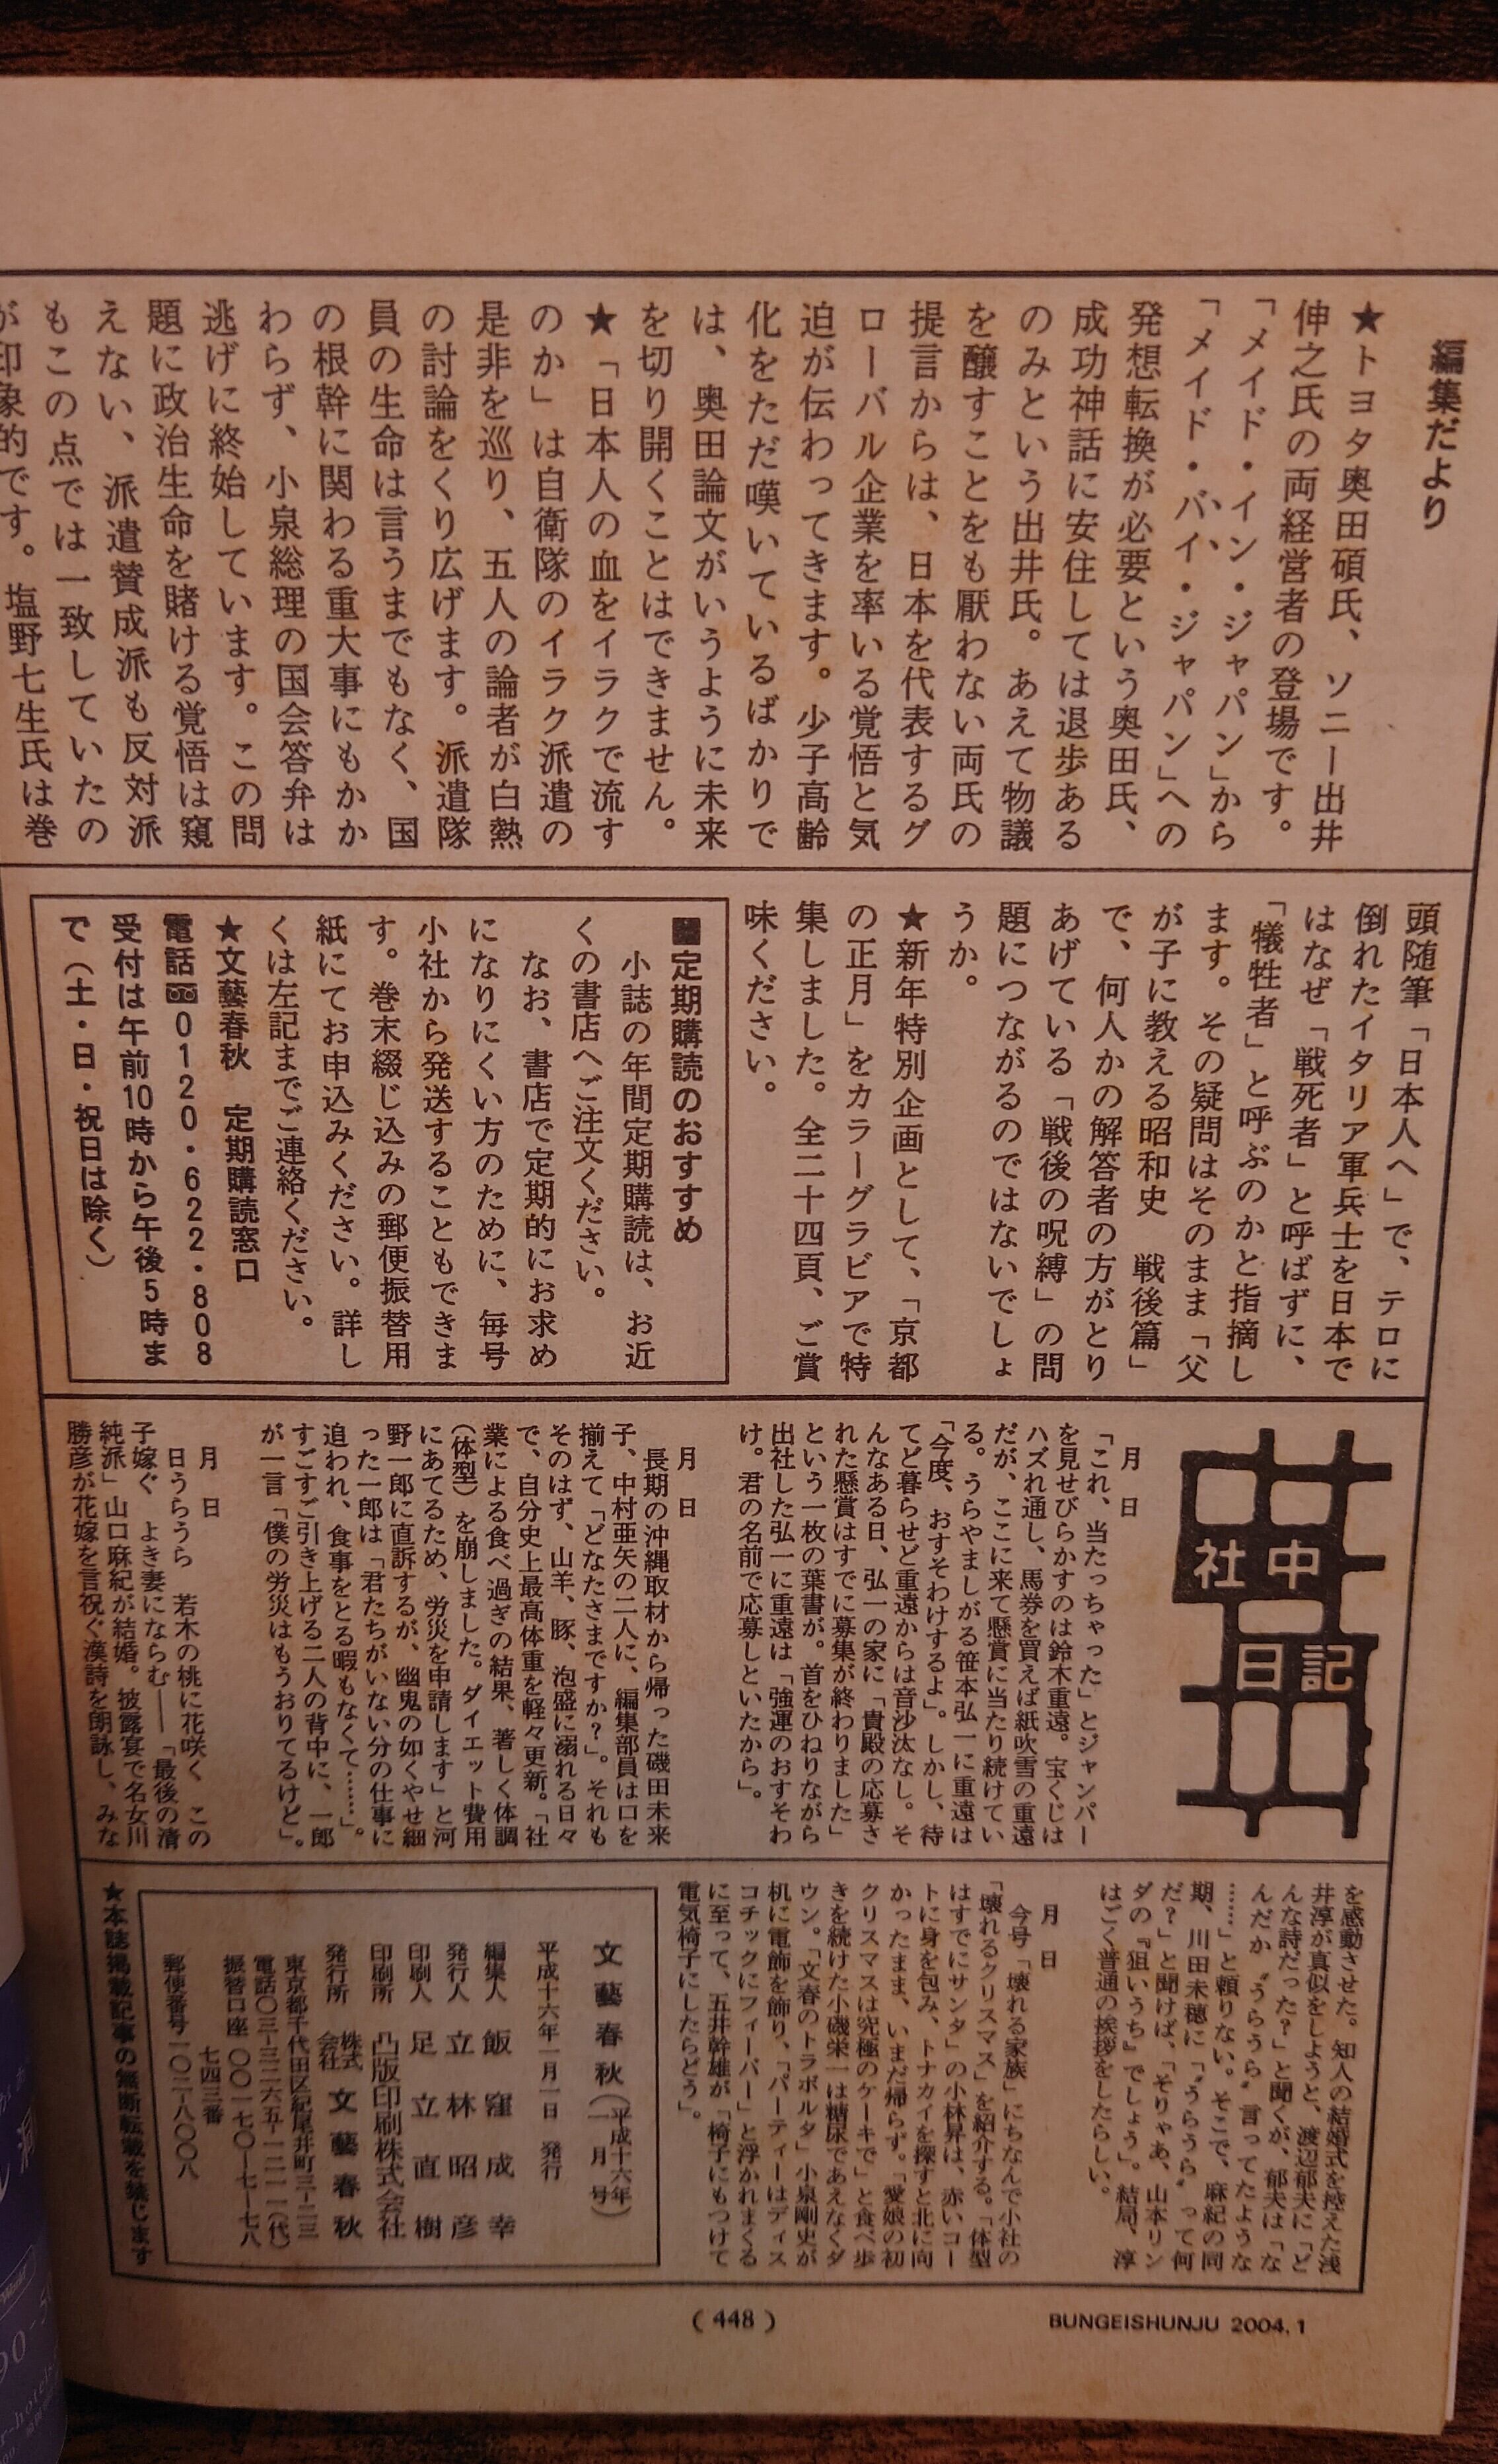 編集だより
★トヨタ奥田碩氏、ソニー出井
伸之氏の両経営者の登場です。
「メイド・イン・ジャパン」から
「メイド・バイ・ジャパン」への
発想転換が必要という奥田氏、
成功神話に安住しては退歩ある
のみという出井氏。あえて物議
を醸すことをも厭わない両氏の
提言からは、日本を代表するグ
ローバル企業を率いる覚悟と気
迫が伝わってきます。少子高齢
化をただ嘆いているばかりで
は、奥田論文がいうように未来
を切り開くことはできません。
★「日本人の血をイラクで流す
のか」は自衛隊のイラク派遣の
是非を巡り、五人の論者が白熱
の討論をくり広げます。派遣隊
員の生命は言うまでもなく、国
の根幹に関わる重大事にもかか
わらず、小泉総理の国会答弁は
逃げに終始しています。この問
題に政治生命を賭ける覚悟は窺
えない、派遣賛成派も反対派
もこの点では一致していたの
が印象的です。塩野七生氏は巻
頭随筆「日本人へ」で、テロに
倒れたイタリア軍兵士を日本で
はなぜ「戦死者」と呼ばずに、
「犠牲者」と呼ぶのかと指摘し
ます。その疑問はそのまま「父
が子に教える昭和史　戦後篇」
で、何人かの解答者の方がとり
あげている「戦後の呪縛」の問
題につながるのではないでしょ
うか。
★新年特別企画として、「京都
の正月」をカラーグラビアで特
集しました。全二十四頁、ご賞
味ください。
■定期購読のおすすめ
小誌の年間定期購読は、お近
くの書店へご注文ください。
なお、書店で定期的にお求め
になりにくい方のために、毎号
小社から発送することもできま
す。巻末綴じ込みの郵便振替用
紙にてお申込みください。詳し
くは左記までご連絡ください。
★文藝春秋　定期購読窓口
電話0120・622・808
受付は午前10時から午後5時ま
で（土・日・祝日は除く）
社中
日記
月　日
「これ、当たっちゃった」とジャンパー
を見せびらかすのは鈴木重遠。宝くじは
ハズれ通し、馬券を買えば紙吹雪の重遠
だが、ここに来て懸賞に当たり続けてい
る。うらやましがる笹本弘一に重遠は
「今度、おすそわけするよ」。しかし、待
てど暮らせど重遠からは音沙汰なし。そ
んなある日、弘一の家に「貴殿の応募さ
れた懸賞はすでに募集が終わりました」
という一枚の葉書が。首をひねりながら
出社した弘一に重遠は「強運のおすそわ
け。君の名前で応募しといたから」。
月　日
長期の沖縄取材から帰った磯田未来
子、中村亜矢の二人に、編集部員は口を
揃えて「どなたさまですか？」。それも
そのはず、山羊、豚、泡盛に溺れる日々
で、自分史上最高体重を軽々更新。「社
業による食べ過ぎの結果、著しく体調
（体型）を崩しました。ダイエット費用
にあてるため、労災を申請します」と河
野一郎に直訴するが、幽鬼の如くやせ細
った一郎は「君たちがいない分の仕事に
追われ、食事をとる暇もなくて……」。
すごすご引き上げる二人の背中に、一郎
が一言「僕の労災はもうおりてるけど」。
月　日
日うらうら　若木の桃に花咲く　この
子嫁ぐ　よき妻にならむ――「最後の清
純派」山口麻紀が結婚。披露宴で名女川
勝彦が花嫁を言祝ぐ漢詩を朗詠し、みな
を感動させた。知人の結婚式を控えた浅
井淳が真似をしようと、渡辺郁夫に「ど
んな詩だった？」と聞くが、郁夫は「な
んだか〝うらうら〟言ってたような
……」と頼りない。そこで、麻紀の同
期、川田未穂に「〝うらうら〟って何
だ？」と聞けば、「そりゃあ、山本リン
ダの『狙いうち』でしょう」。結局、淳
はごく普通の挨拶をしたらしい。
月　日
今号「壊れる家族」にちなんで小社の
「壊れるクリスマス」を紹介する。「体型
はすでにサンタ」の小林昇は、赤いコー
トに身を包み、トナカイを探すと北に向
かったまま、いまだ帰らず。「愛娘の初
クリスマスは究極のケーキで」と食べ歩
きを続けた小磯栄一は糖尿であえなくダ
ウン。「文春のトラボルタ」小泉剛史が
机に電飾を飾り、「パーティーはディス
コチックにフィーバー」と浮かれまくる
に至って、五井幹雄が「椅子にもつけて
電気椅子にしたらどう」。
文藝春秋（平成十六年一月号）
平成十六年一月一日　発行
編集人　飯窪成幸
発行人　立林昭彦
印刷人　足立直樹
印刷所　凸版印刷株式会社
発行所　株式会社　文藝春秋
東京都千代田区紀尾井町三―二三
電話〇三―三二六五―一二一一（代）
振替口座　〇〇一七〇―七―七八
七四三番
郵便番号一〇二―八〇〇八
★本誌掲載記事の無断転載を禁じます
(448)
BUNGEISHUNJU 2004.1